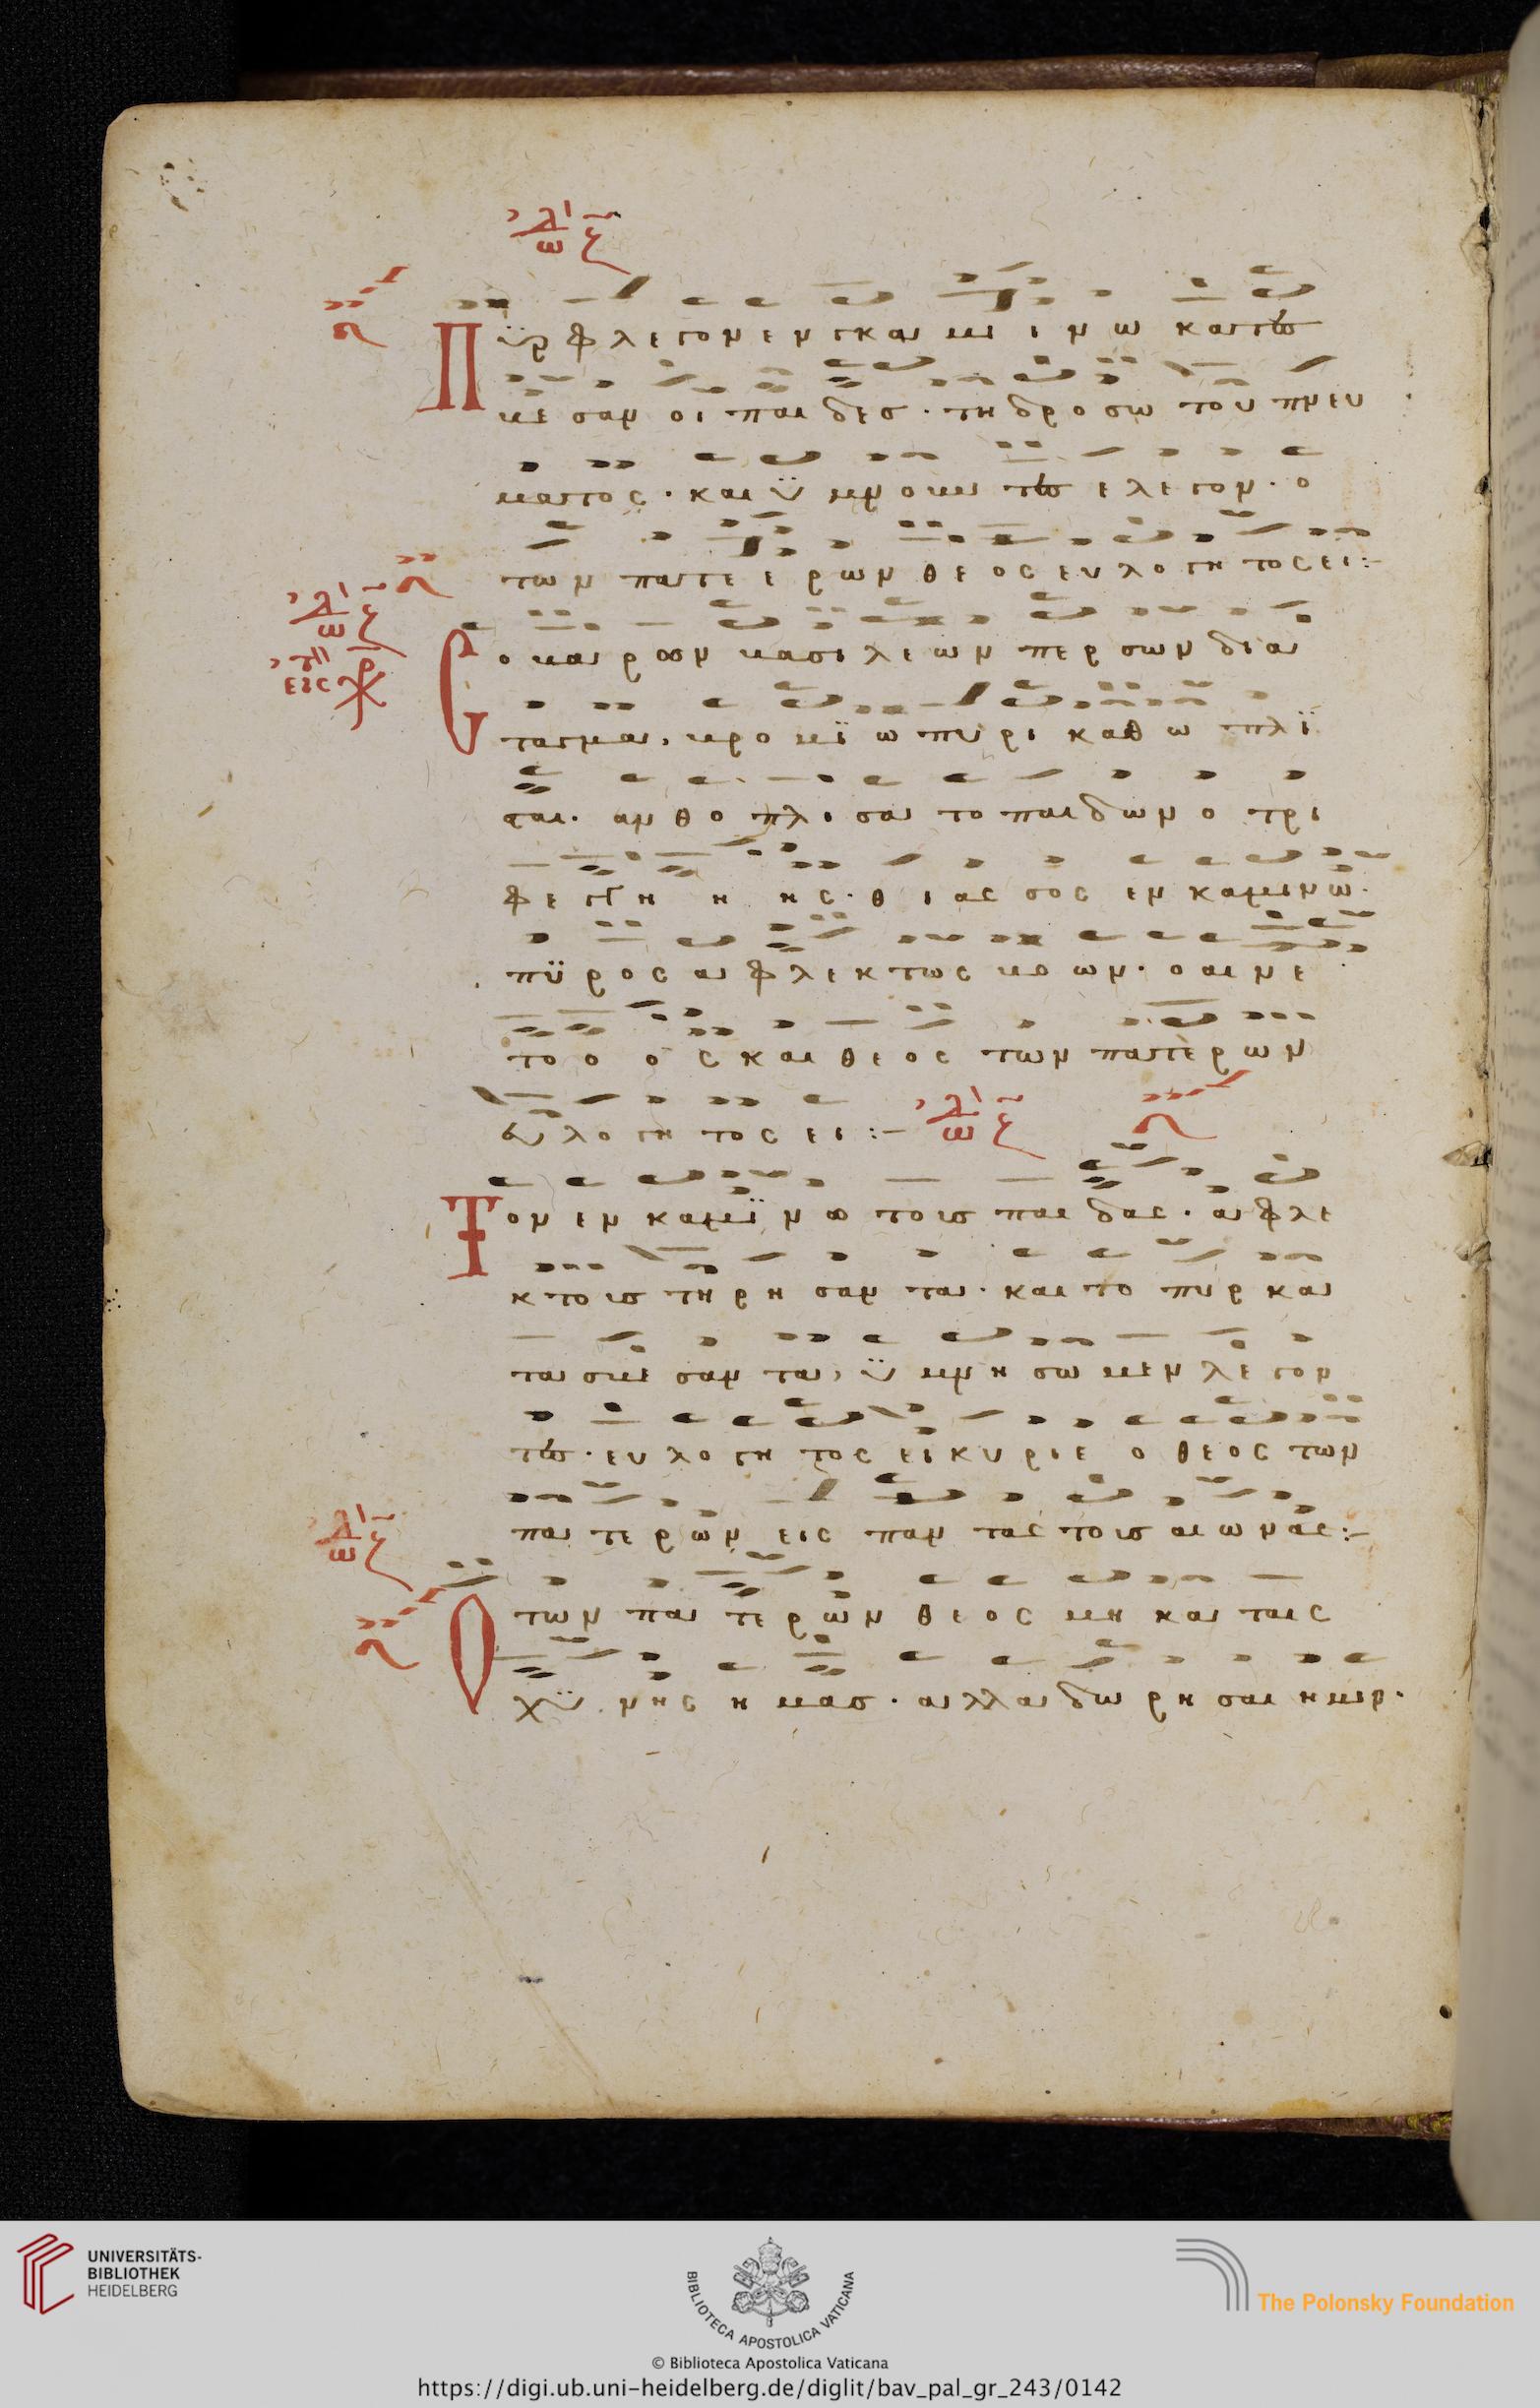 ὠδ
Πϋρ φλεγομεν εκ και μι ι νω κατω
κε σαν οι παι δες · τη δρο σω του πνευ
ματος · και ϋ μνουν τω ελεγον · ο
των πατε ε ρων θεος ευλογη τος ει :-
ομαρων βασιλεων περσων δια
ταγμα, βρομϊω πυρι καθωπλϊ
ται · ανθοπλισατο παιδων ο τρι
φεγγη η ης · θιασος εν καμινω ·
πϋρος αφλεκτως βοων · ο αινε
το ο ος και θεος των πατερων
ευλογητος ει :-
Τον εν καμϊνω τους παιδας · αφλε
κτους τηρησαντα · και το πυρ κα
τασβεσαντα, ϋμνησωμεν λεγον
τες · ευλογητος ει κυριε ο θεος των
πατερων εις παντας τους αιωνας :-
Ο των πατερων θεος μη καταις
χϋνης ημας · αλλα δωρησαι ημιν ·
UNIVERSITÄTS-
BIBLIOTHEK
HEIDELBERG
BIBLIOTECA APOSTOLICA VATICANA
The Polonsky Foundation
© Biblioteca Apostolica Vaticana
https://digi.ub.uni-heidelberg.de/diglit/bav_pal_gr_243/0142